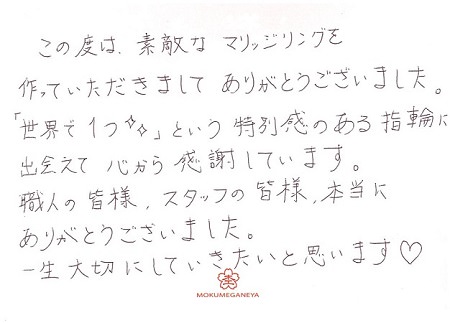 この度は、素敵な マリッジリングを
作っていただきまして ありがとうございました。
「世界で1つ✧✧」という 特別感のある 指輪に
出会えて 心から 感謝しています。
職人の皆様、スタッフの皆様、本当に
ありがとうございました。
一生大切にしていきたいと思います♡
MOKUMEGANEYA